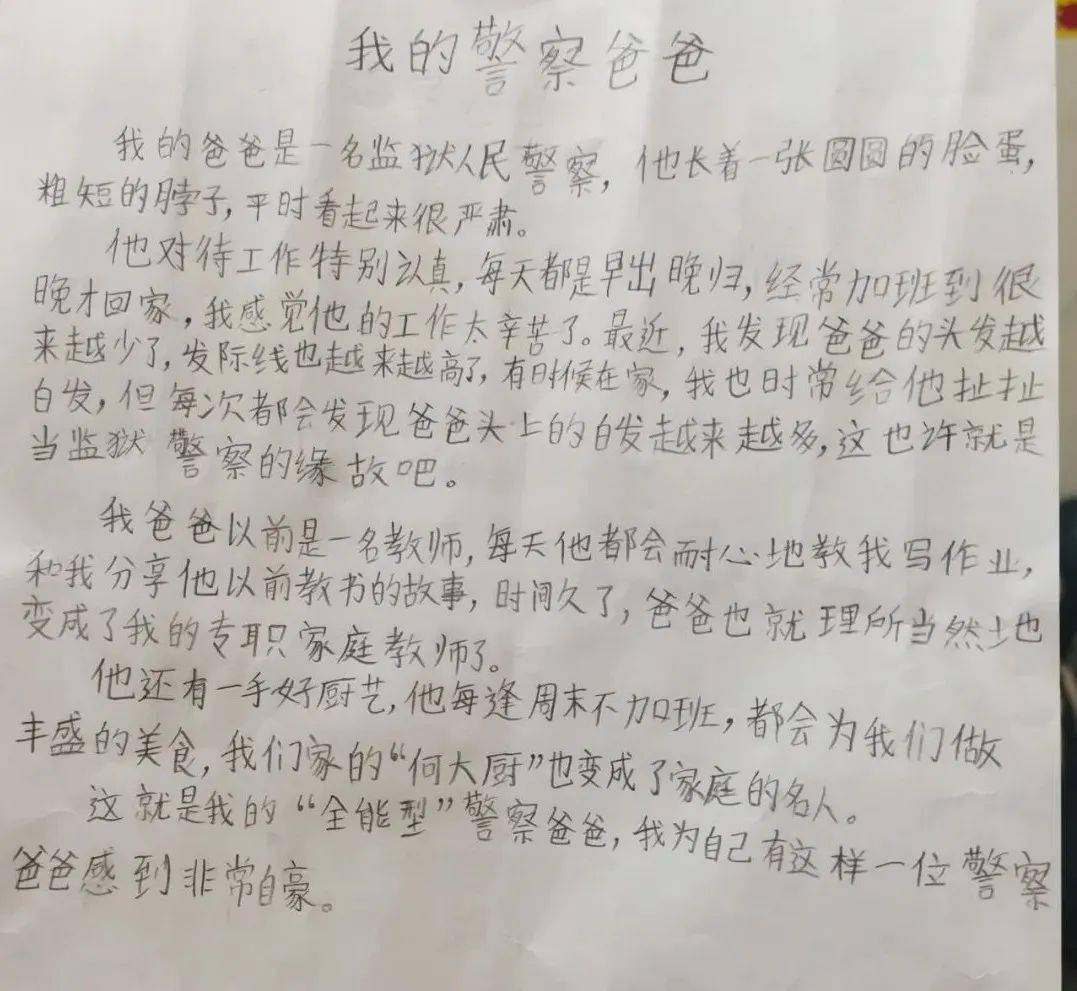 我的警察爸爸
我的爸爸是一名监狱人民警察，他长着一张圆圆的脸蛋，
粗短的脖子，平时看起来很严肃。
他对待工作特别认真，每天都是早出晚归，经常加班到很
晚才回家，我感觉他的工作太辛苦了。最近，我发现爸爸的头发越
来越少了，发际线也越来越高了，有时候在家，我也时常给他扯扯
白发，但每次都会发现爸爸头上的白发越来越多，这也许就是
当监狱警察的缘故吧。
我爸爸以前是一名教师，每天他都会耐心地教我写作业，
和我分享他以前教书的故事，时间久了，爸爸也就理所当然地
变成了我的专职家庭教师了。
他还有一手好厨艺，他每逢周末不加班，都会为我们做
丰盛的美食，我们家的“何大厨”也变成了家庭的名人。
这就是我的“全能型”警察爸爸，我为自己有这样一位警察
爸爸感到非常自豪。